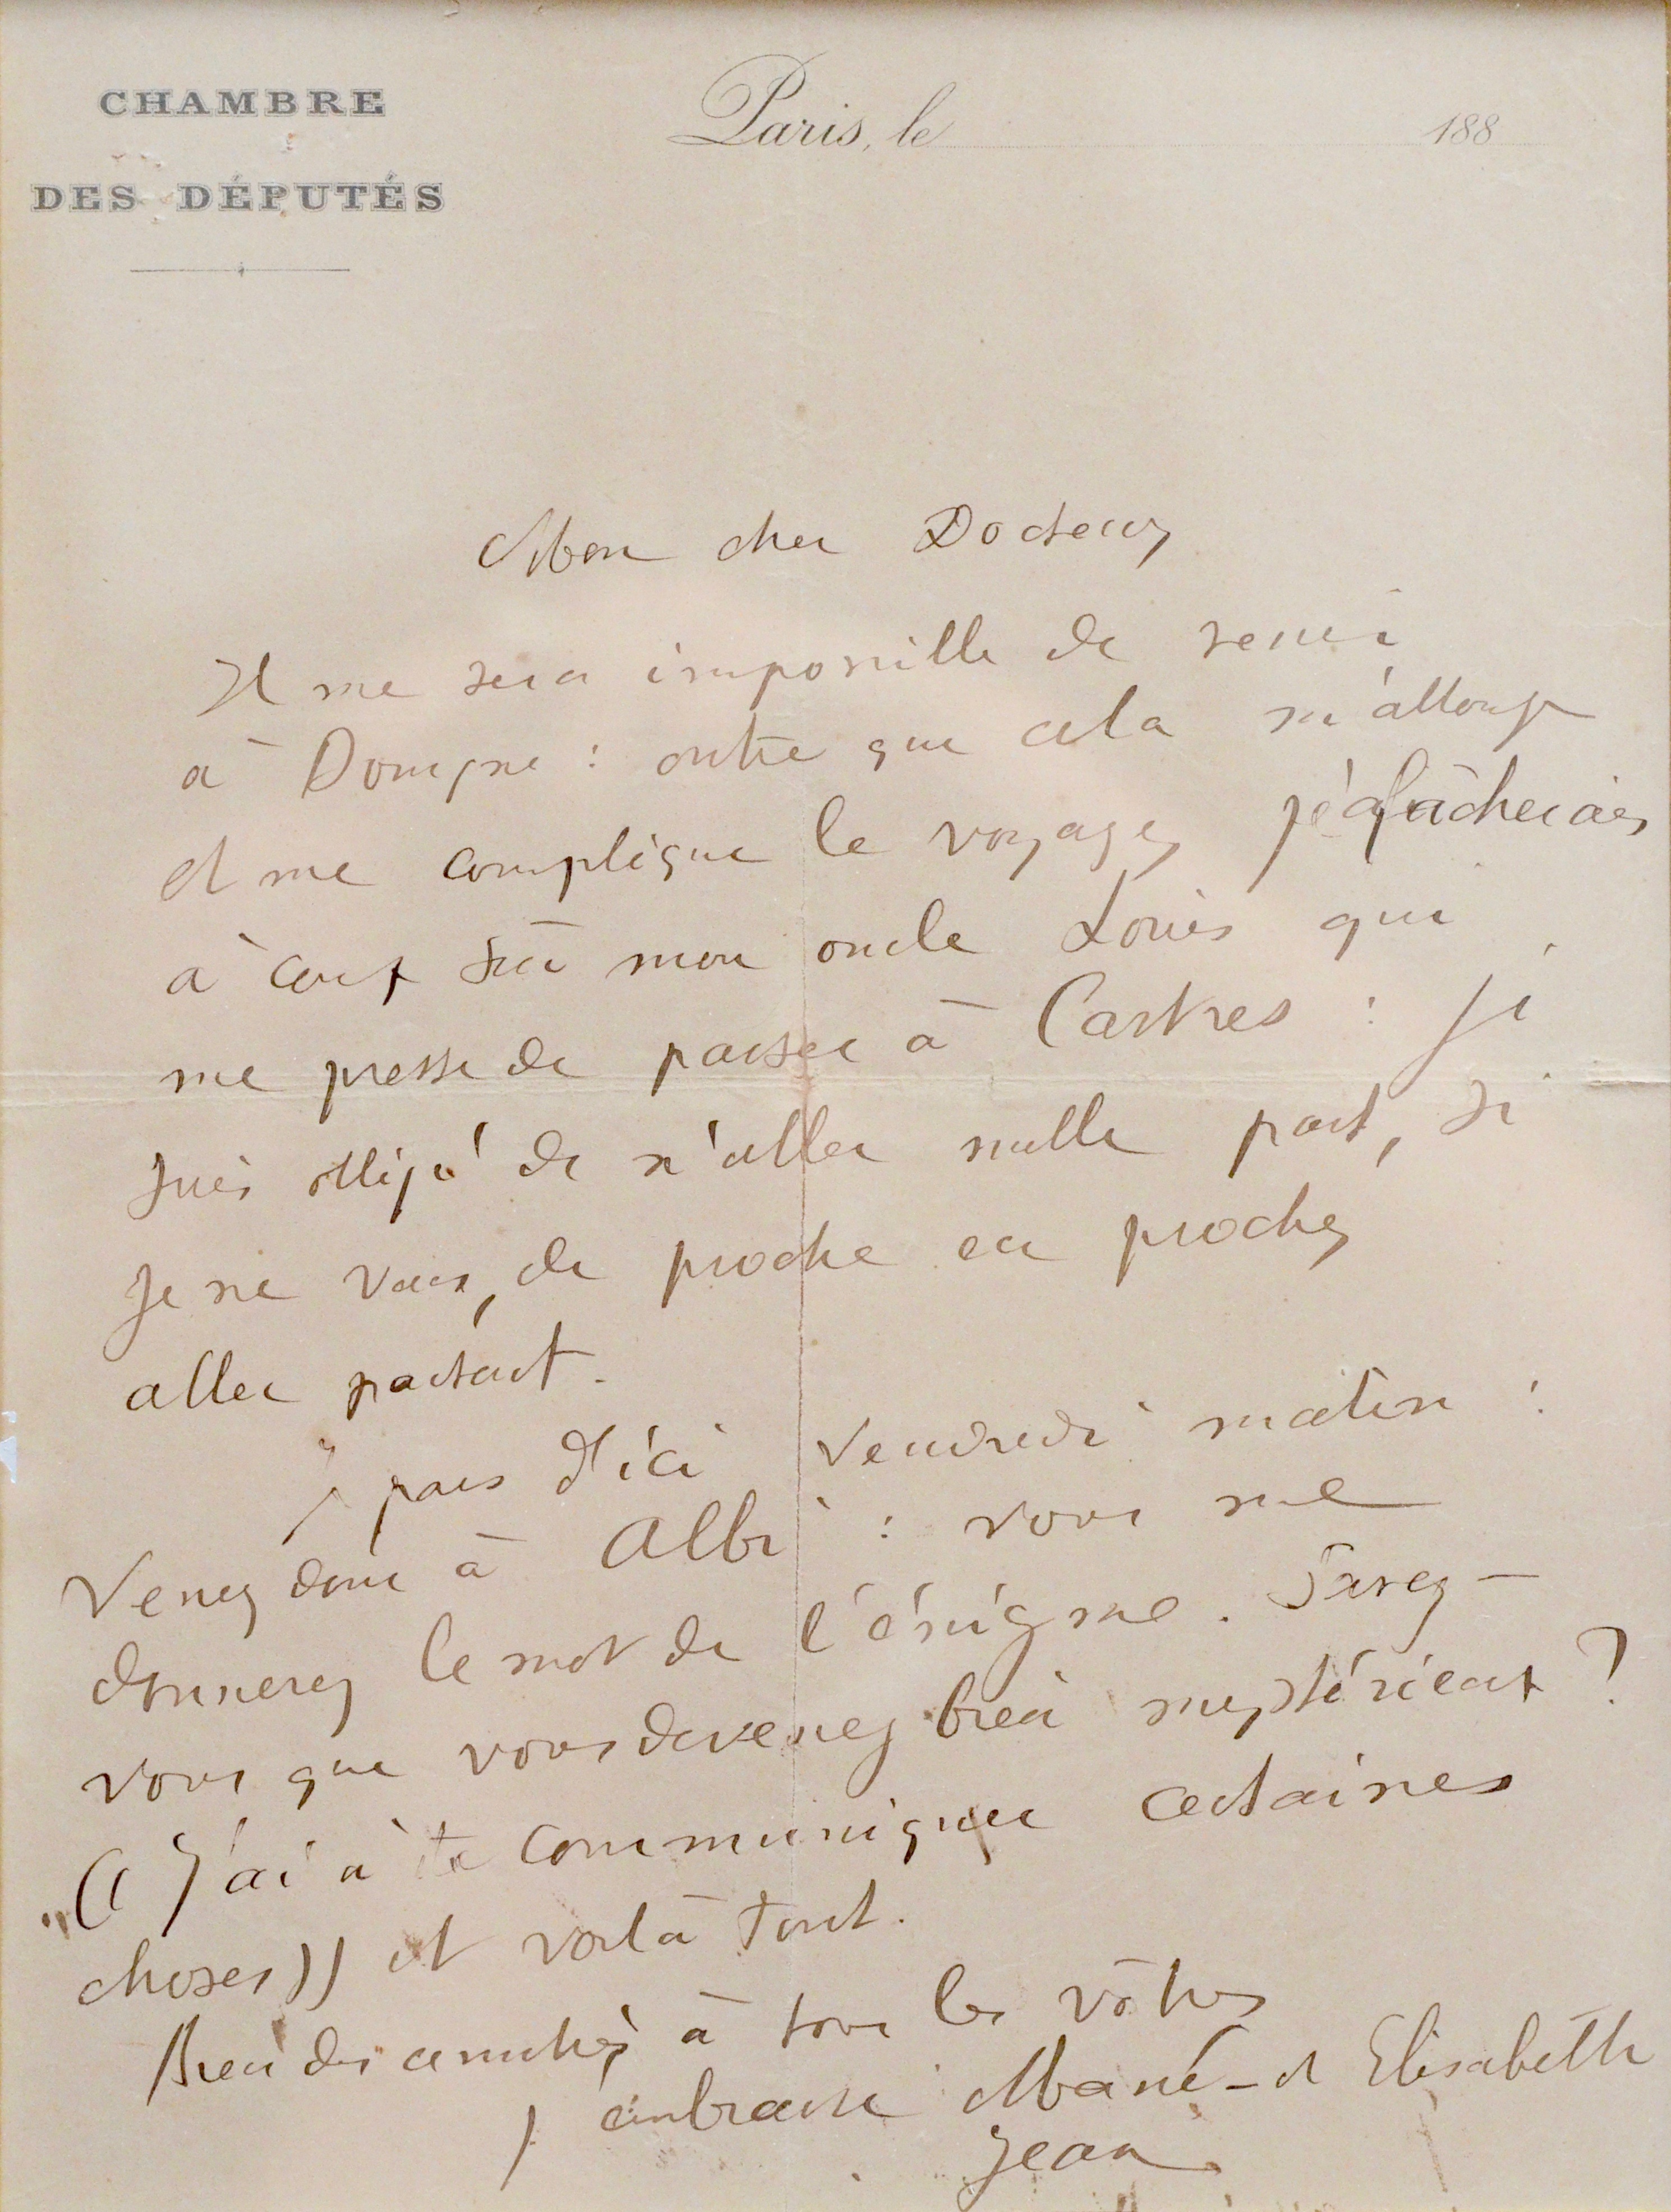 CHAMBRE
DES DÉPUTÉS
Paris, le 188
Mon cher Docteur,
Il me sera impossible de venir
à Dourgne : outre que cela m'allonge
et me complique le voyage, je fâcherais
à coup sûr mon oncle Louis qui
me presse de passer à Castres : je
suis obligé de n'aller nulle part, si
je ne veux, de proche en proche,
aller partout.
Je pars d'ici vendredi matin :
Venez donc à Albi : vous me
donnerez le mot de l'énigme. Savez-
vous que vous devenez bien mystérieux ?
"(( J'ai à te communiquer certaines
choses )) et voilà tout.
Bien des amitiés à tous les vôtres
J'embrasse Marie et Elisabeth
Jean